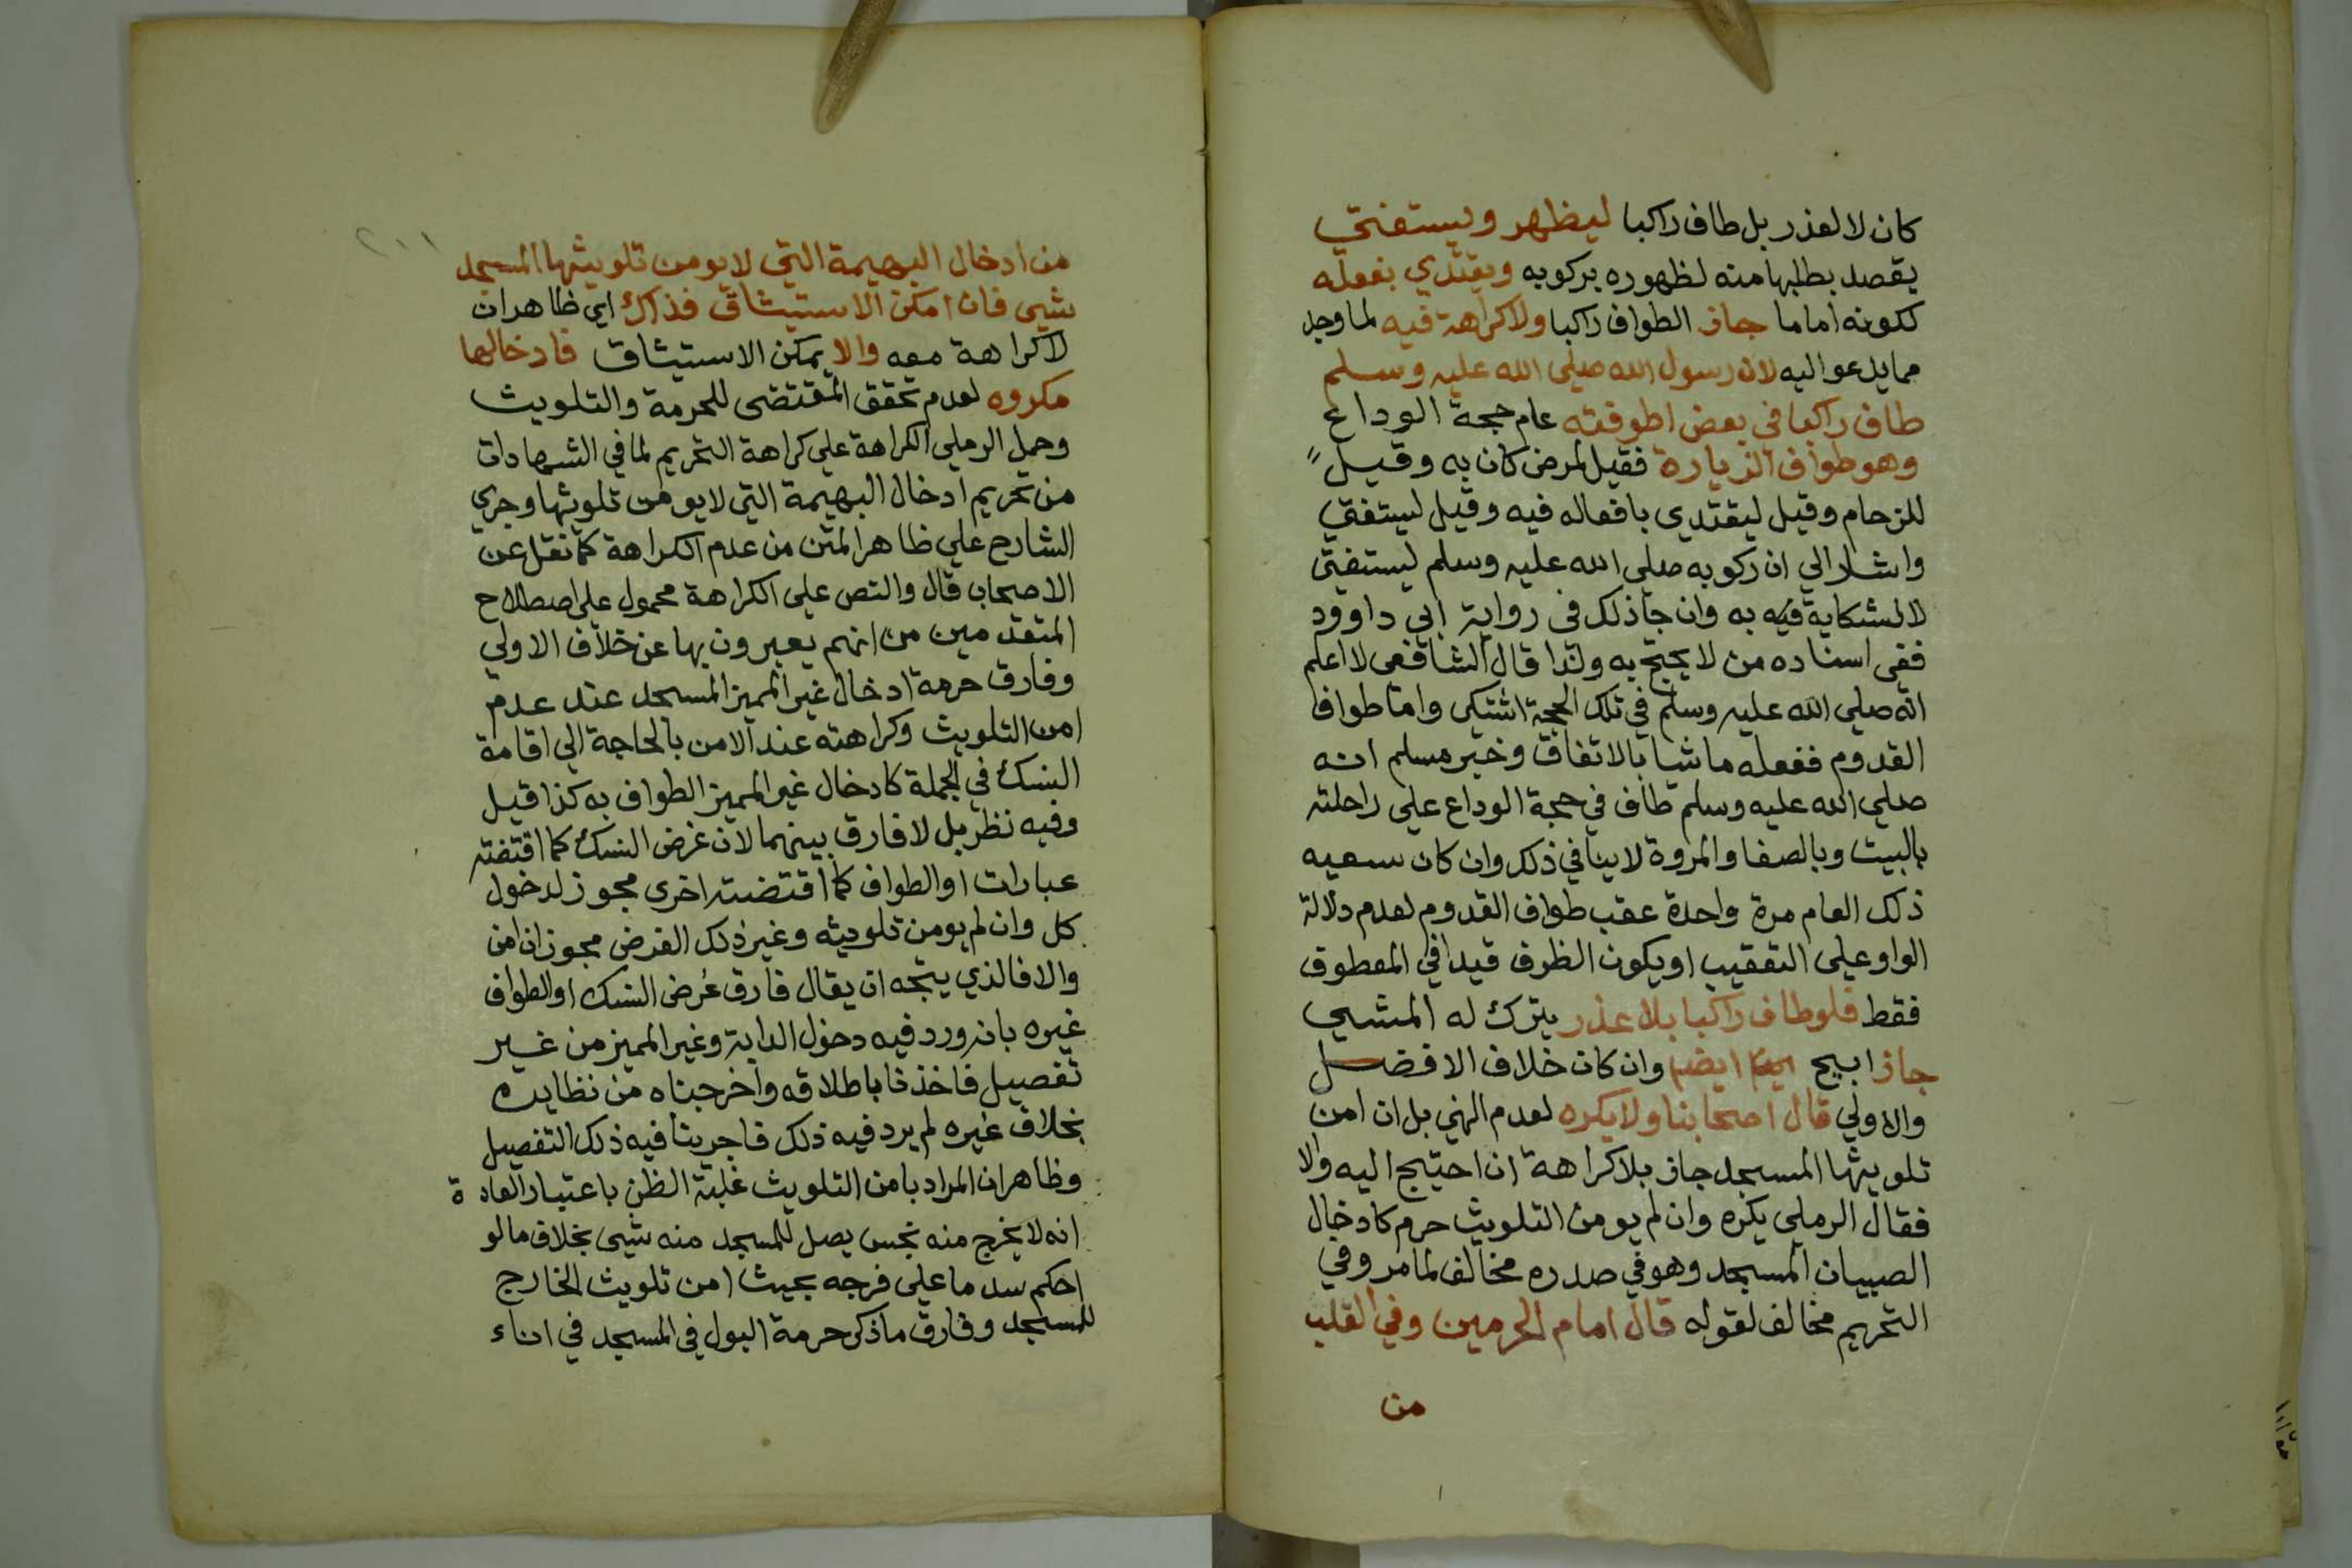 كان لا لعذر بل طاف راكبا ليظهر ويستفتي
يقصد بطلبها منه لظهوره بركوبه ويقتدي بفعله
ككونه اماما جاز الطواف راكبا ولا كراهة فيه لما وجد
مما يدعو اليه لان رسول الله صلي الله عليه وسلم
طاف راكبا في بعض اطوفته عام حجة الوداع
وهو طواف الزيارة فقيل لمرض كان به وقيل
للزحام وقيل ليقتدي بافعاله فيه وقيل ليستفتي
واشار الي ان ركوبه صلي الله عليه وسلم ليستفتي
لا لشكاية فيه به وان جا ذلك في رواية ابي داوود
ففي اسناده من لا يحتج به ولذا قال الشافعي لا اعلم
انه صلي الله عليه وسلم في تلك الحجة اشتكي واما طواف
القدوم ففعله ماشيا بالاتفاق وخبر مسلم انه
صلي الله عليه وسلم طاف في حجة الوداع علي راحلته
بالبيت وبالصفا والمروة لا ينافي ذلك وان كان سعيه
ذلك العام مرة واحدة عقب طواف القدوم لعدم دلالة
الواو علي التعقيب او يكون الظرف قيدا في المعطوف
فقط فلو طاف راكبا بلا عذر يترك له المشي
جاز ابيح ايضا وان كان خلاف الافضل
والاولي قال اصحابنا ولا يكره لعدم النهي بل ان امن
تلويثها المسجد جاز بلا كراهة ان احتيج اليه والا
فقال الرملي يكره وان لم يومن التلويث حرم كادخال
الصبيان المسجد وهو في صدره مخالف لما مر وفي
التحريم مخالف لقوله قال امام الحرمين وفي القلب
من
٢٠١
من ادخال البهيمة التي لا يومن تلويثها المسجد
شيي فان امكن الاستيثاق فذاك اي ظاهر ان
لا كراهة معه والا يمكن الاستيثاق فادخالها
مكروه لعدم تحقق المقتضى للحرمة والتلويث
وحمل الرملي الكراهة علي كراهة التحريم لما في الشهادات
من تحريم ادخال البهيمة التي لا يومن تلويثها وجري
الشارح علي ظاهر المتن من عدم الكراهة كما نقل عن
الاصحاب قال والنص علي الكراهة محمول علي اصطلاح
المتقدمين من انهم يعبرون بها عن خلاف الاولي
وفارق حرمة ادخال غير المميز المسجد عند عدم
امن التلويث وكراهته عند الامن بالحاجة الي اقامة
النسك في الجملة كادخال غير المميز الطواف به كذا قيل
وفيه نظر بل لا فارق بينهما لان غرض النسك كما اقتضته
عبارات او الطواف كما اقتضته اخري مجوز لدخول
كل وان لم يومن تلويثه وغير ذلك الغرض مجوز ان امن
والا فالذي يتجه ان يقال فارق غرض النسك او الطواف
غيره بانه ورد فيه دخول الدابة وغير المميز من غير
تفصيل فاخذنا باطلاقه واخرجناه من نظايره
بخلاف غيره لم يرد فيه ذلك فاجرينا فيه ذلك التفصيل
وظاهر ان المراد بامن التلويث غلبة الظن باعتبار العادة
انه لا يخرج منه نجس يصل للمسجد منه شيي بخلاف ما لو
احكم سد ما علي فرجه بحيث امن تلويث الخارج
للمسجد وفارق ما ذكر حرمة البول في المسجد في اناء